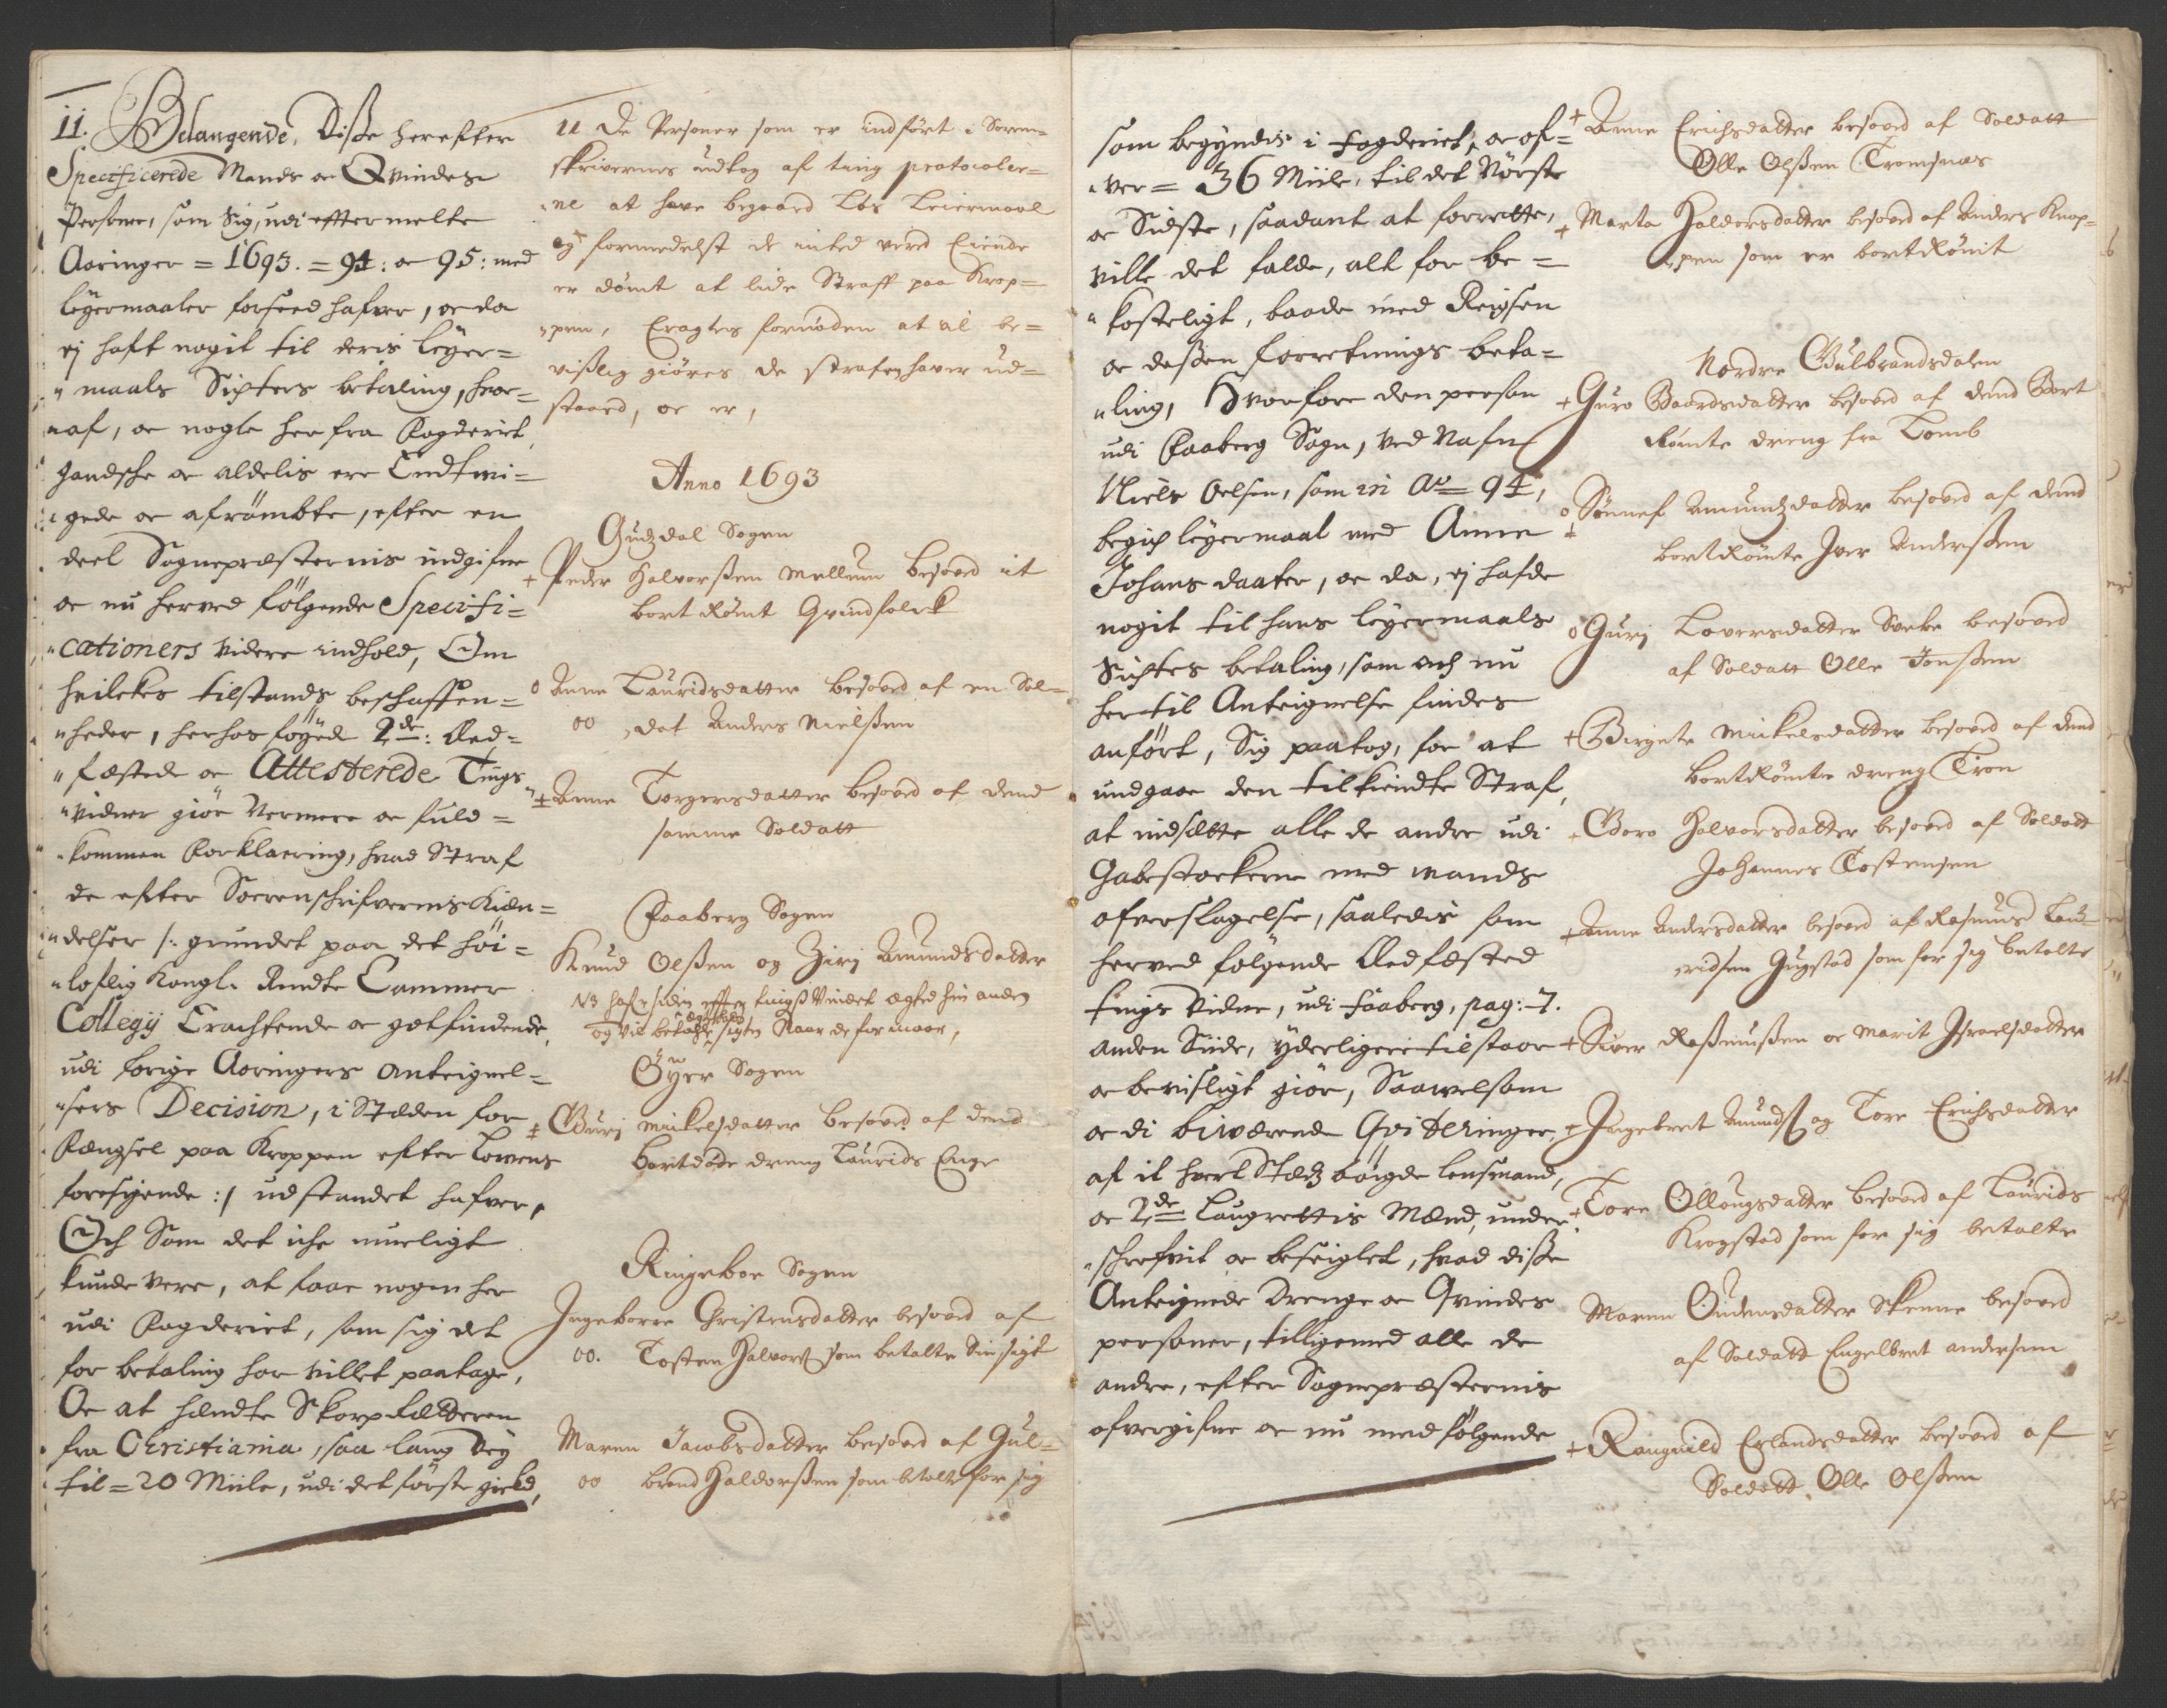 11. Belangende, Disse herefter
Specificerede Mands oc Qvindes
Persohner, som Sig, udi efftermelte
Aaringer = 1693. = 94: oc 95: med
leyermaaler forseed hafver, oc da
ej haft nogit til deris leyer=
maals Sichters betaling, hvor=
af, oc nogle her fra Fogderiet,
gandsche oc aldelis ere Endtvi=
gede oc afrømbte, efter en
deel Sognepræsternis indgifne
oc nu herved følgende Specifi=
cationers videre indhold, Om
hvilckes tilstands beschaffen=
heder, herhos føyede 2de: Red=
fæstede oc Attesterede Tings
vidner giör Nermere oc fuld=
kommen Forklaering, hvad Straf
de efter Sorenschrifvernis Kien=
delser /: grundet paa det höi=
loflig Kongl. Rendte Cammer
Collegij Erachtende oc gotfindende,
udi forige Aaringers Anteignel=
sers Decision, i Stæden for
Fængsel paa Kroppen efter Lowens
foresigende :/ udstandet hafver,
Och Som det iche mueligt
kunde vere, at faae nogen her
udi Fogderiet, som sig det
for betaling har villet paatage,
Oc at hændte Skarpretteren
fra Christiania, saa lang Vey
til = 20 Miile, udi det første gield,
11 De Personer som er indført i Soren=
skriverens udtog af ting protocoler=
ne at have begaaed Løs Leiermaal
og formedelst de inted vered Eiende
er dømt at lide Straff paa Krop=
pen, Eragtes fornøden at vel be=
visslig giöres de straffen haver ud=
staaed, oc er,
Anno 1693
Gudzdal Sogen
+ Peder Halvorssen Mellum besoved it
bort Rømt Qvindfolck
o Anne Lauridsdatter besoved af en Sol=
oo dat Anders Nielssen
+ Anne Torgersdatter besoved af dend
samme Soldatt
Faaberg Sogen
Knud Olssen og Ziri Amundsdatter
NB hafr siden efter tingss Vindet egted hin anden
og vil betahle Egteskabs sigten Naar de formaar,
Öyer Sogen
+ Guri Mickelsdatter besoved af dend
bortdøde dreng Laurids Enge
Ringeboe Sogen
Ingeborre Christensdatter besoved af
oo. Tosten Halvorss som betalte Sin sigt
Maren Jacobsdatter besoved af Gul=
oo brand Haldorssen som betalte for sig
som begyndis i Fogderiet, oc of=
ver = 36 Miile, til det Nørste
oc Sidste, saadant at forrette,
ville det falde, alt for be=
kosteligt, baade med Reigsen
oc dessen forretnings beta=
ling, Hvorfore den person
udi Faaberg Sogn, ved Nafn
Niels Oelsen, som in Ao = 94,
begich leyermaal med Anne
Johans daater, oc da, ej hafde
nogit til hans leyermaals
Sichtes betaling, som och nu
her til Anteignelse findes
anført, Sig paatog, for at
undgaae den tilkiendte Straf,
at indsætte alle de andre udi
Gabestockene med mands
ofverslagelse, saaledis som
herved følgende Redfæsted
tings Vidne, udi Faaberg, pag: 7.
anden Siide, yderligere tilstaar
oc bevisligt giör, Saawelsom
oc di hiværende Qviteringer,
af it hvert Stædz böigde lensmand,
oc 2de Laugrettis Mænd, under
schrefvit oc beseiglet, hvad disse
Anteignede Drenge oc Qvindes
personer, tilligemed alle de
andre, efter Sognepræsternis
ofvergifne oc nu medfølgende
+ Anne Erichsdatter besoved af Soldatt
Olle Olssen Tromsnæs
+ Marta Haldorsdatter besoved af Anders Knap=
pen som er bortRømt
Nordre Gulbrandsdalen
+ Guro Baardsdatter besoved af dend Bort
Rømte dreng fra Lomb
o + Sønnef Amundzdatter besoved af dend
bortRømte Iver Anderssen
o Gurj Loversdatter Sorbe besoved
af Soldatt Olle Jonssen
+ Birgete Mickelsdatter besoved af dend
bortRømte dreng Tron
+ Goro Halvorsdatter besoved af Soldatt
Johannes Tostensen
+ Anne Andersdatter besoved af Rasmus Lau=
ridsen Gugstad som for sig betalte
+ Siver Rassmussen oc Marit Israelsdatter
+ Ingebret Amundss og Tore Erichsdatter
+ Tore Ollougsdatter besoved af Laurids
Krogstad som for sig betalte
Maren Oudensdatter Skenne besoved
af Soldatt Engelbret andersen
+ Rangnild Erlandsdatter besoved af
Soldatt Olle Olssen